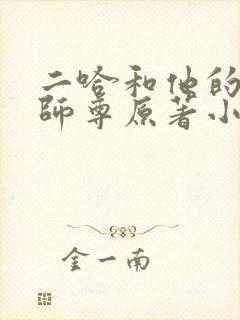 二哈和他的
師尊原著小
金一南